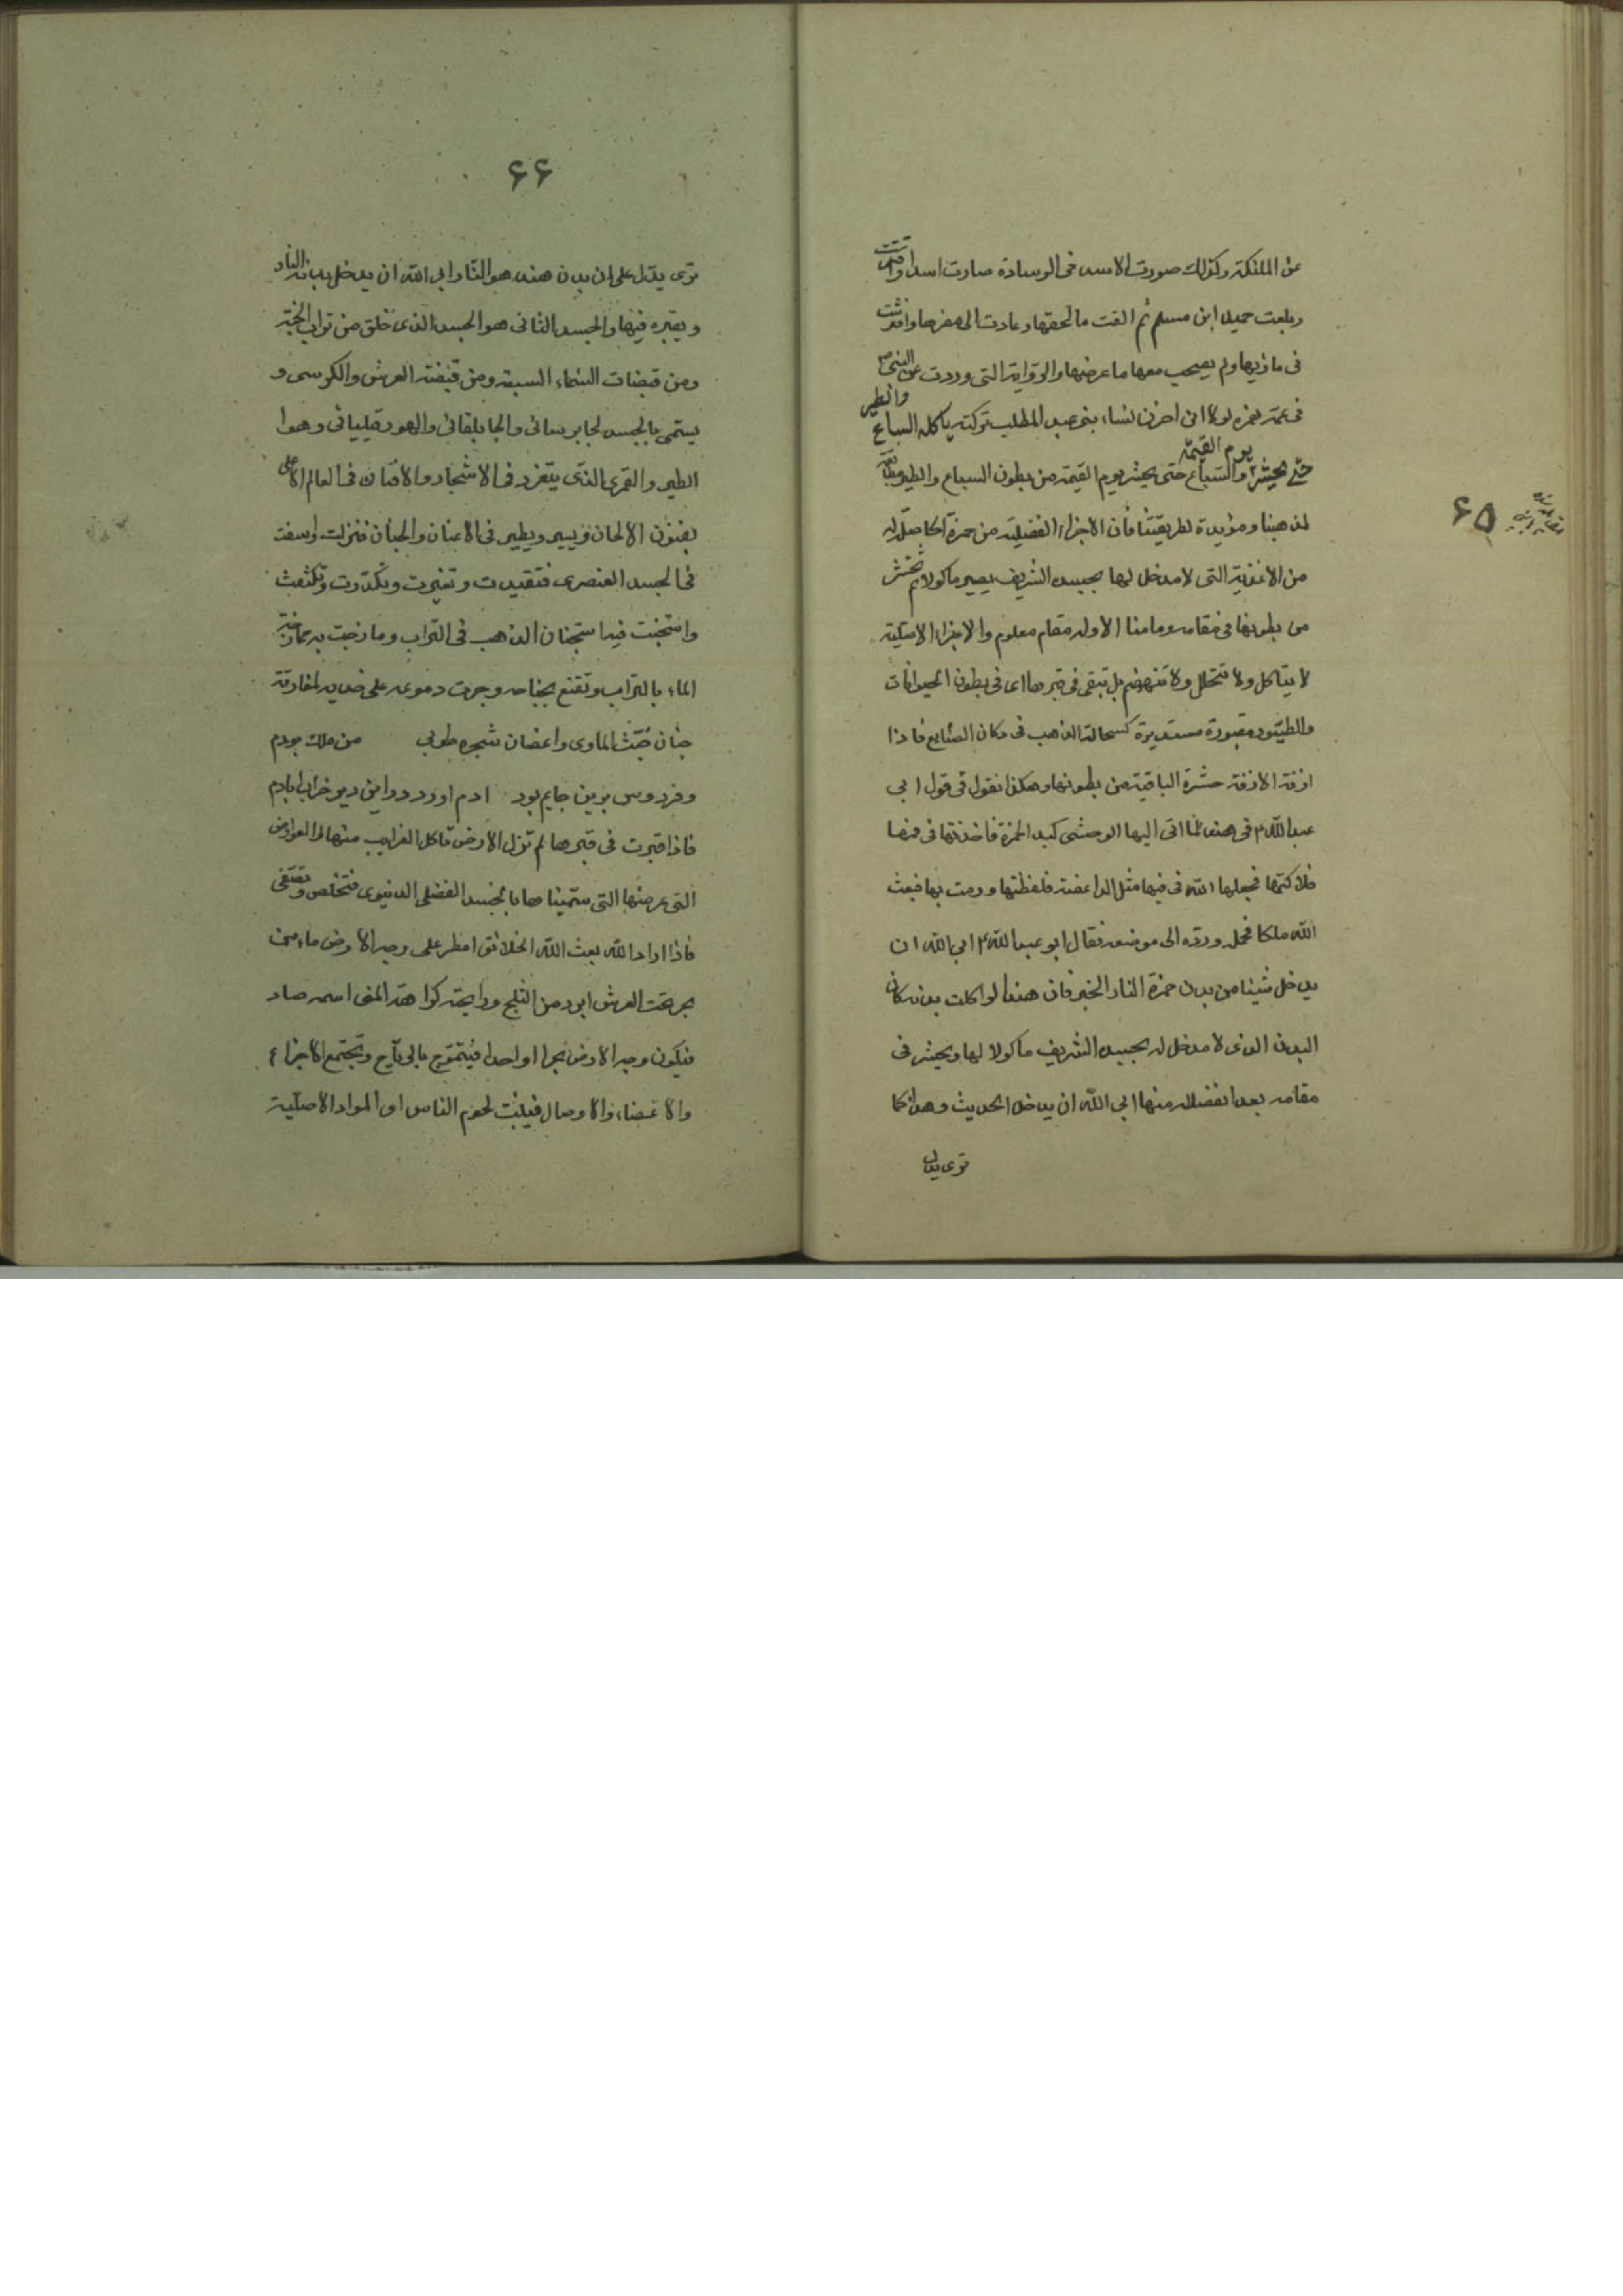 ٦٥
عن الملئكة وكذلك صورت الاسد فى الوسادة صارت اسدا وافترست
وبلعت حميد ابن مسلم ثم القت ما لحقها وعادت الى مقرها وافترشت
فى ما ذيها ولم يصحب معها ما عرضها والرواية التى وردت عن النبى ص
فى عمه حمزه لولا انى احزن لنساء بنى عبد المطلب تركته ياكله السباع والطير
يوم القيمة
حتى يحشر والسباع حتى يحشر يوم القيمة من بطون السباع والطيور مطابقة
لمذهبنا ومؤيدة لطريقتنا فان الاجزاء الفضلية من حمزة الحاصلة له
من الاغذية التى لا مدخل لها بجسده الشريف يصير ماكولا ثم تحشر
من بطونها فى مقامه وما منا الا وله مقام معلوم والاجزاء الاصلية
لا يتاكل ولا تتحلل ولا تنهضم بل تبقى فى قبرها اى فى بطون الحيوانات
والطيور مقبورة مستديرة كسحالة الذهب فى دكان الصايغ فاذا
ازفة الازفة حشرة الباقية من بطونها وهكذا نقول فى قول ابى
عبدالله ع فى هند لما اتى اليها الوحشى كبد الحمزة فاخذتها فى فمها
فلاكتها فجعلها الله فى فيها مثل الداغصة فلفظتها ورمت بها فبعث
الله ملكا فحمله ورده الى موضعه فقال ابو عبدالله ع ابى الله ان
يدخل شيئا من بدن حمزة النار الخبر فان هندا لو اكلت بدنه كان
البدن الذى لا مدخل له بجسده الشريف ماكولا لها ويحشر فى
مقامه بعد انفضاله منها ابى الله ان يدخل الحديث وهذا كما
ترى يدل
٦٦
ترى يدل على ان بدن هند هو النار ابى الله ان يدخل بدنه النار
ويقبره فيها والجسد الثانى هو الجسد الذى خلق من تراب الجنة
ومن قبضات السماء السبعة ومن قبضة العرش والكرسى و
يسمى بالجسد الجابرسائى والجابلقائى والهورقليائى وهوا
الطير والقمرى الذى يتغرد فى الاشجار والافنان فى العالم الاعلى
بفنون الالحان ويسير ويطير فى الاغنان والجنان فنزلت واسفت
فى الجسد العنصرى فتقيدت وتغيرت وتكدرت وتكثفت
واستجنت فيه استجنان الذهب فى التراب ومازجت به ممازجة
الماء بالتراب وتقنع بجناحه وجرت دموعه على خديه لمفارقة
جنان جنت الماوى واغصان شجره طوبى من ملك بودم
وفردوس برين جايم بود ادم اورد درين دير خراب ابادم
فاذا قبرت فى قبرها لم تزل الارض تاكل الغرايب منها والعوارض
التى عرضها التى سميناها بالجسد الفضلى الدنيوى فتخلص وتصفى
فاذا اراد الله بعث الله الخلائق امطر على وجه الارض ماء من
بحر تحت العرش ابرد من الثلج ورايحته كرايحة المنى اسمه صاد
فيكون وجه الارض بحرا واحدا فيتموج بالرياح وتجتمع الاجزاء
والاعضاء والاوصال فينبت لحوم الناس اى المواد الاصلية